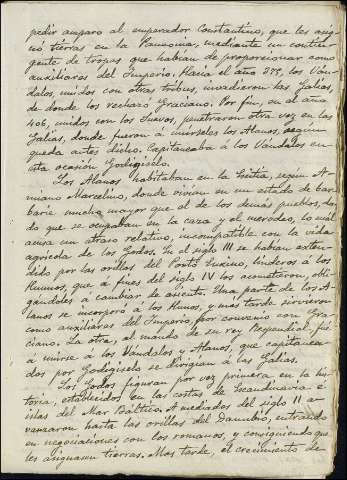 pedir amparo al emperador Constantino, que les asig-
nó tierras en la Panonia, mediante un contin-
gente de tropas que habían de proporcionar como
auxiliares del Imperio. Hacia el año 375, los Ván-
dalos, unidos con otras tribus, invadieron las Galias,
de donde los rechazó Graciano. Por fin, en el año
406, unidos con los Suevos, penetraron otra vez en las
Galias, donde fueron á unírseles los Alanos, según
queda antes dicho. Capitaneaba á los Vándalos en
esta ocasión Godigiselo.
Los Alanos habitaban en la Scitia, según A-
miano Marcelino, donde vivían en un estado de bar-
barie mucho mayor que el de los demás pueblos, da-
do que se ocupaban en la caza y el merodeo, lo cual
acusa un atraso relativo, incompatible con la vida
agrícola de los Godos. En el siglo III se habían exten-
dido por las orillas del Ponto Euxino, linderos á los
Hunnos, que á fines del siglo IV los acometieron, obli-
gándoles á cambiar de asiento. Una parte de los A-
lanos se incorporó á los Hunos, y más tarde sirvieron
como auxiliares del Imperio, por convenio con Gra-
ciano. La otra, al mando de su rey Respendial, fué
á unirse á los Vándalos y Alanos, que capitanea-
dos por Godigiselo se dirigían á las Galias.
Los Godos figuran por vez primera en la his-
toria, establecidos en las costas de Escandinavia é
islas del Mar Báltico. A mediados del siglo II a-
vanzaron hasta las orillas del Danubio, entrando
en negociaciones con los romanos, y consiguiendo que
les asignasen tierras. Mas tarde, el crecimiento de